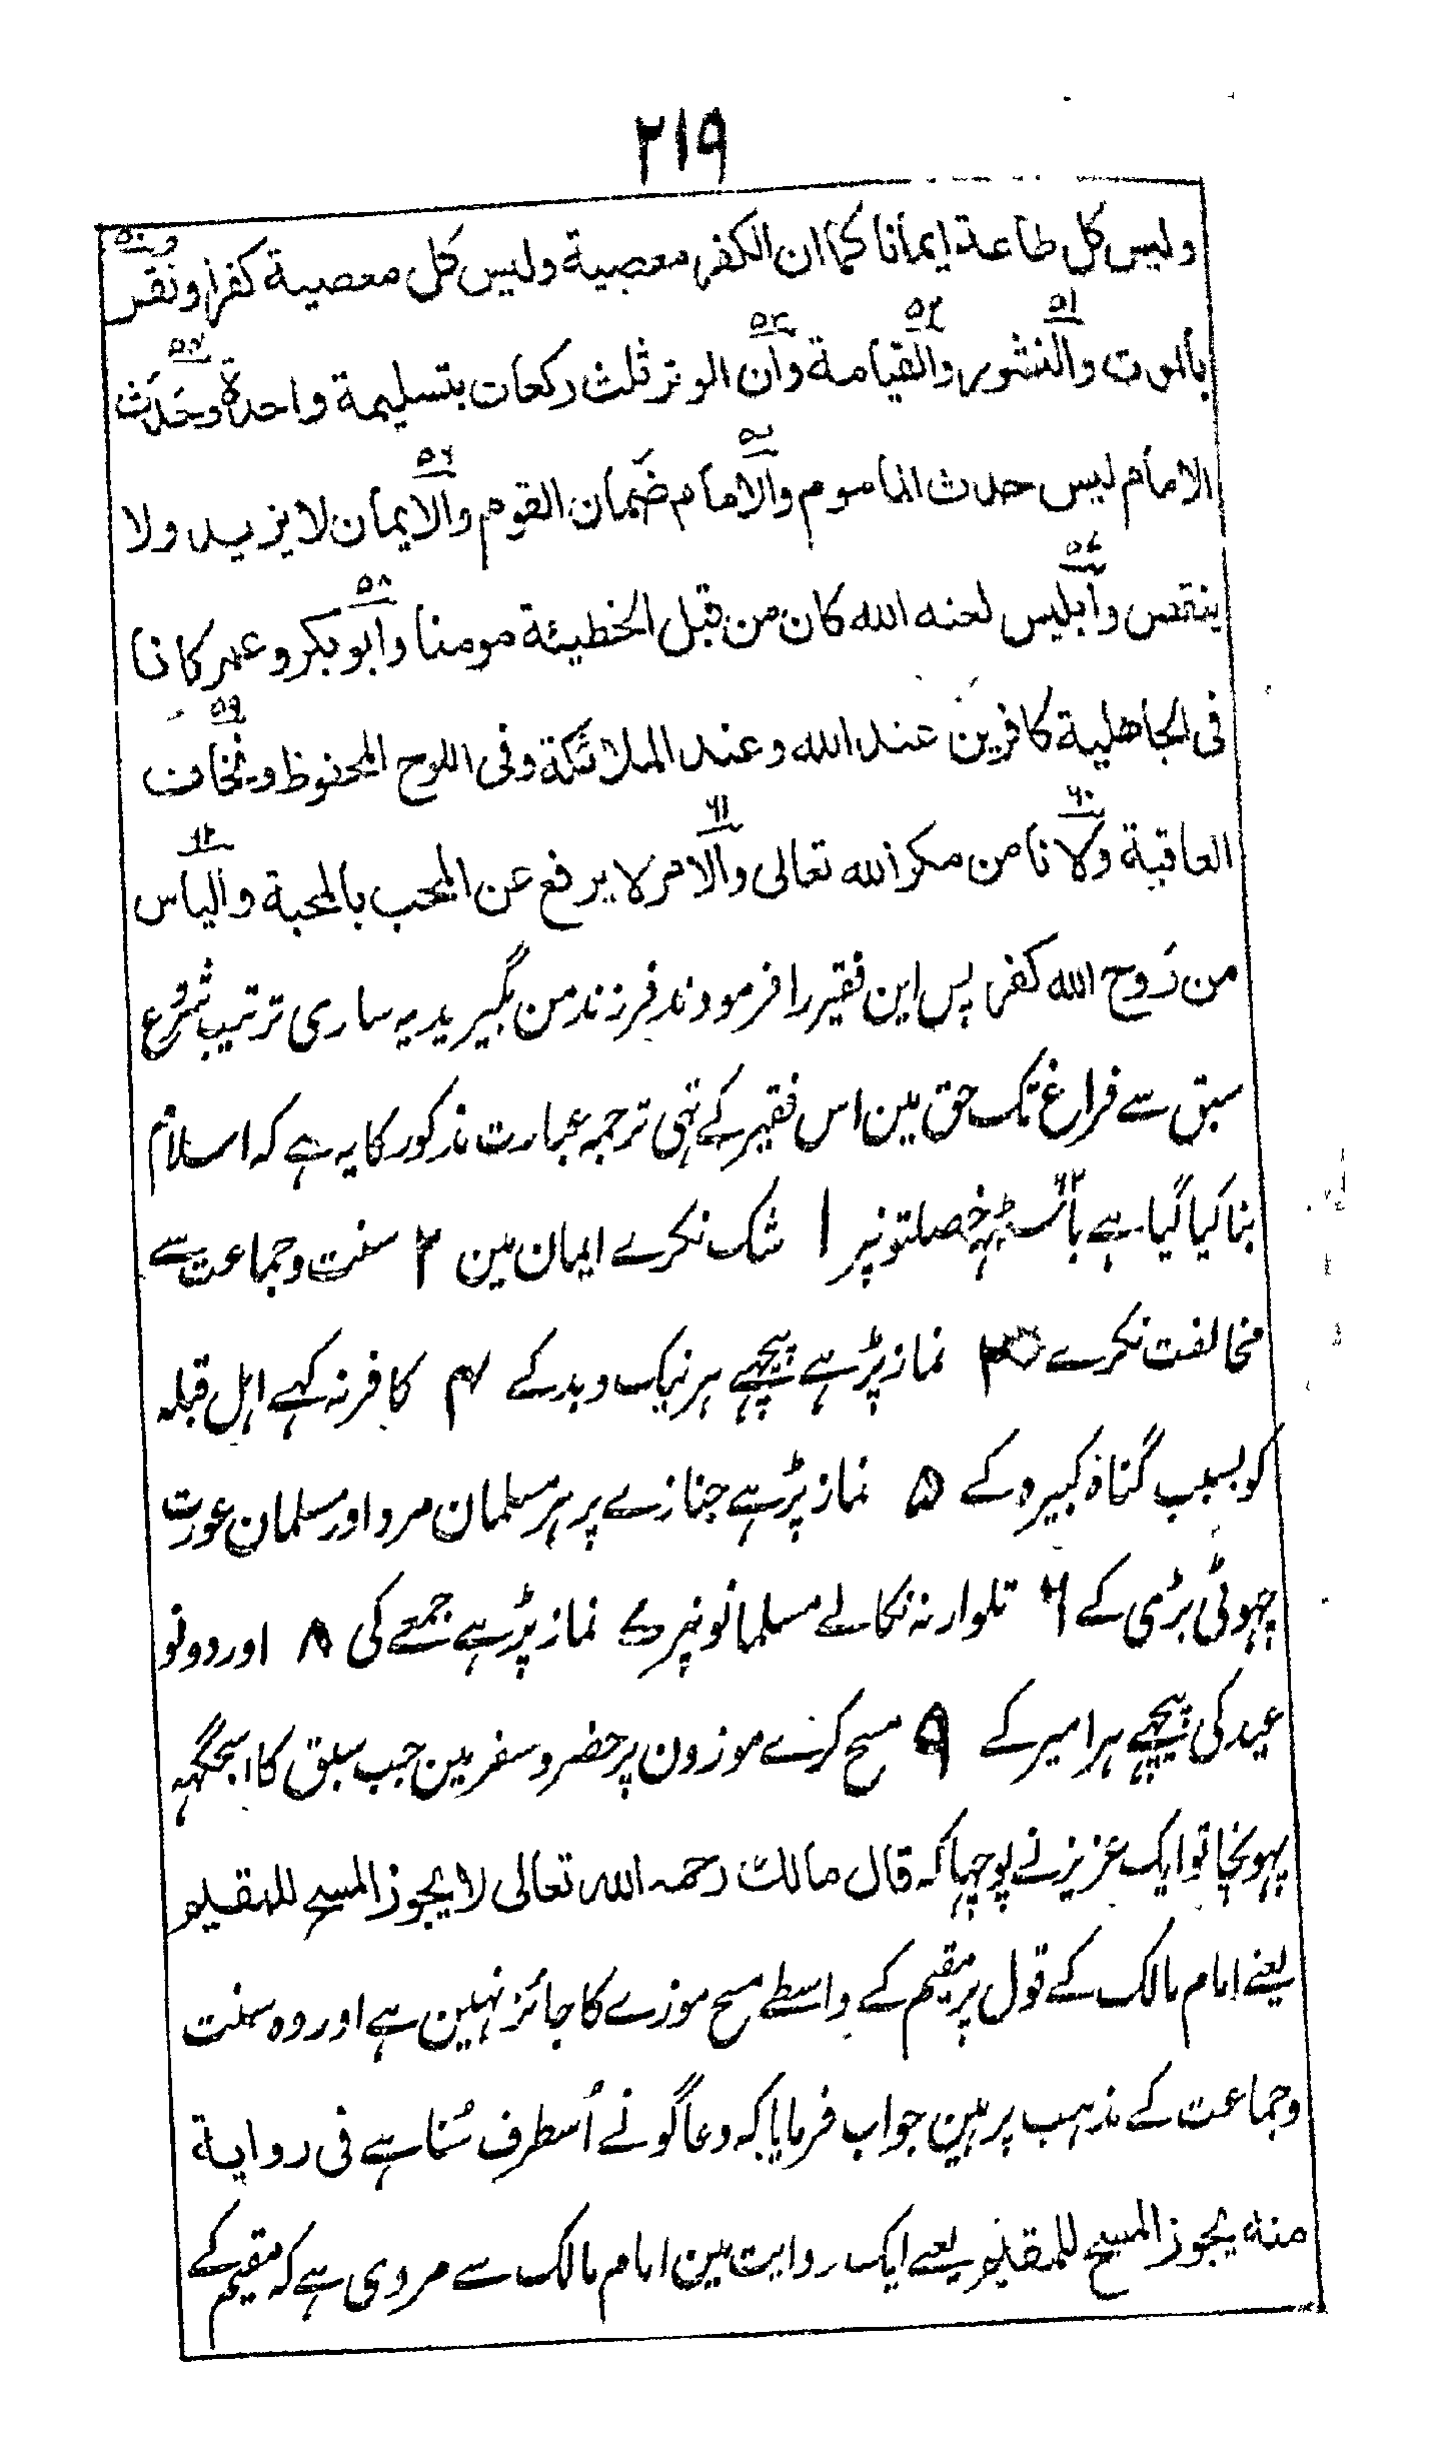 ۲۱۹
وليس كل طاعة ايمانا كما ان الكفر معصية وليس كل معصية كفرا ونقر ۵۰
بالموت والنشور ۵۱ والقيامة ۵۲ وان ۵۳ الوتر ثلث ركعات بتسليمة واحدة وحَدَث ۵۴
الامام ليس حدث الماموم والامام ۵۵ ضَمان القوم والايمان ۵۶ لا يزيد ولا
ينقص وابليس ۵۷ لعنه الله كان من قبل الخطيئة مومنا وابو بكر ۵۸ وعمر كانا
فى الجاهلية كافرين عند الله وعند الملائكة وفى اللوح المحفوظ ونخاف ۵۹
العاقبة ولا ۶۰ نامن مكر الله تعالى والامر ۶۱ لا يرفع عن المحب بالمحبة والياس ۶۲
من رَوح الله كفر پس این فقیر را فرمودند فرزند من بگیرید یہ ساری ترتیب شُروع
سبق سے فراغ تک حق مین اس فقیر کے تہی ترجمہ عبارت مذکور کا یہ ہے کہ اسلام
بنا کیا گیا ہے باسٹہہ ۶۲ خصلتونپر ۱ شک نکرے ایمان مین ۲ سنت وجماعت سے
مخالفت نکرے ۳ نماز پڑہے پیچہے ہر نیک و بد کے ۴ کافر نہ کہے اہل قبلہ
کو بسبب گناہ کبیرہ کے ۵ نماز پڑہے جنازے پر ہر مسلمان مرد اور مسلمان عورت
چہوٹی بڑی کے ۶ تلوار نہ نکالے مسلمانونپر ۷ نماز پڑہے جمعے کی ۸ اور دونو
عید کی پیچہے ہر امیر کے ۹ مسح کرے موزون پر حضر و سفر مین جب سبق کا اسجگہہ
پہونچا تو ایک عزیز نے پوچہا کہ قال مالك رحمه الله تعالى لا يجوز المسح للمقيم
یعنے امام مالک کے قول پر مقیم کے واسطے مسح موزے کا جائز نہین ہے اور وہ سنت
وجماعت کے مذہب پر ہین جواب فرمایا کہ دعاگو نے اُسطرف سُنا ہے فی رواية
منه يجوز المسح للمقيم یعنے ایک روایت مین امام مالک سے مروی ہے کہ مقیم کے